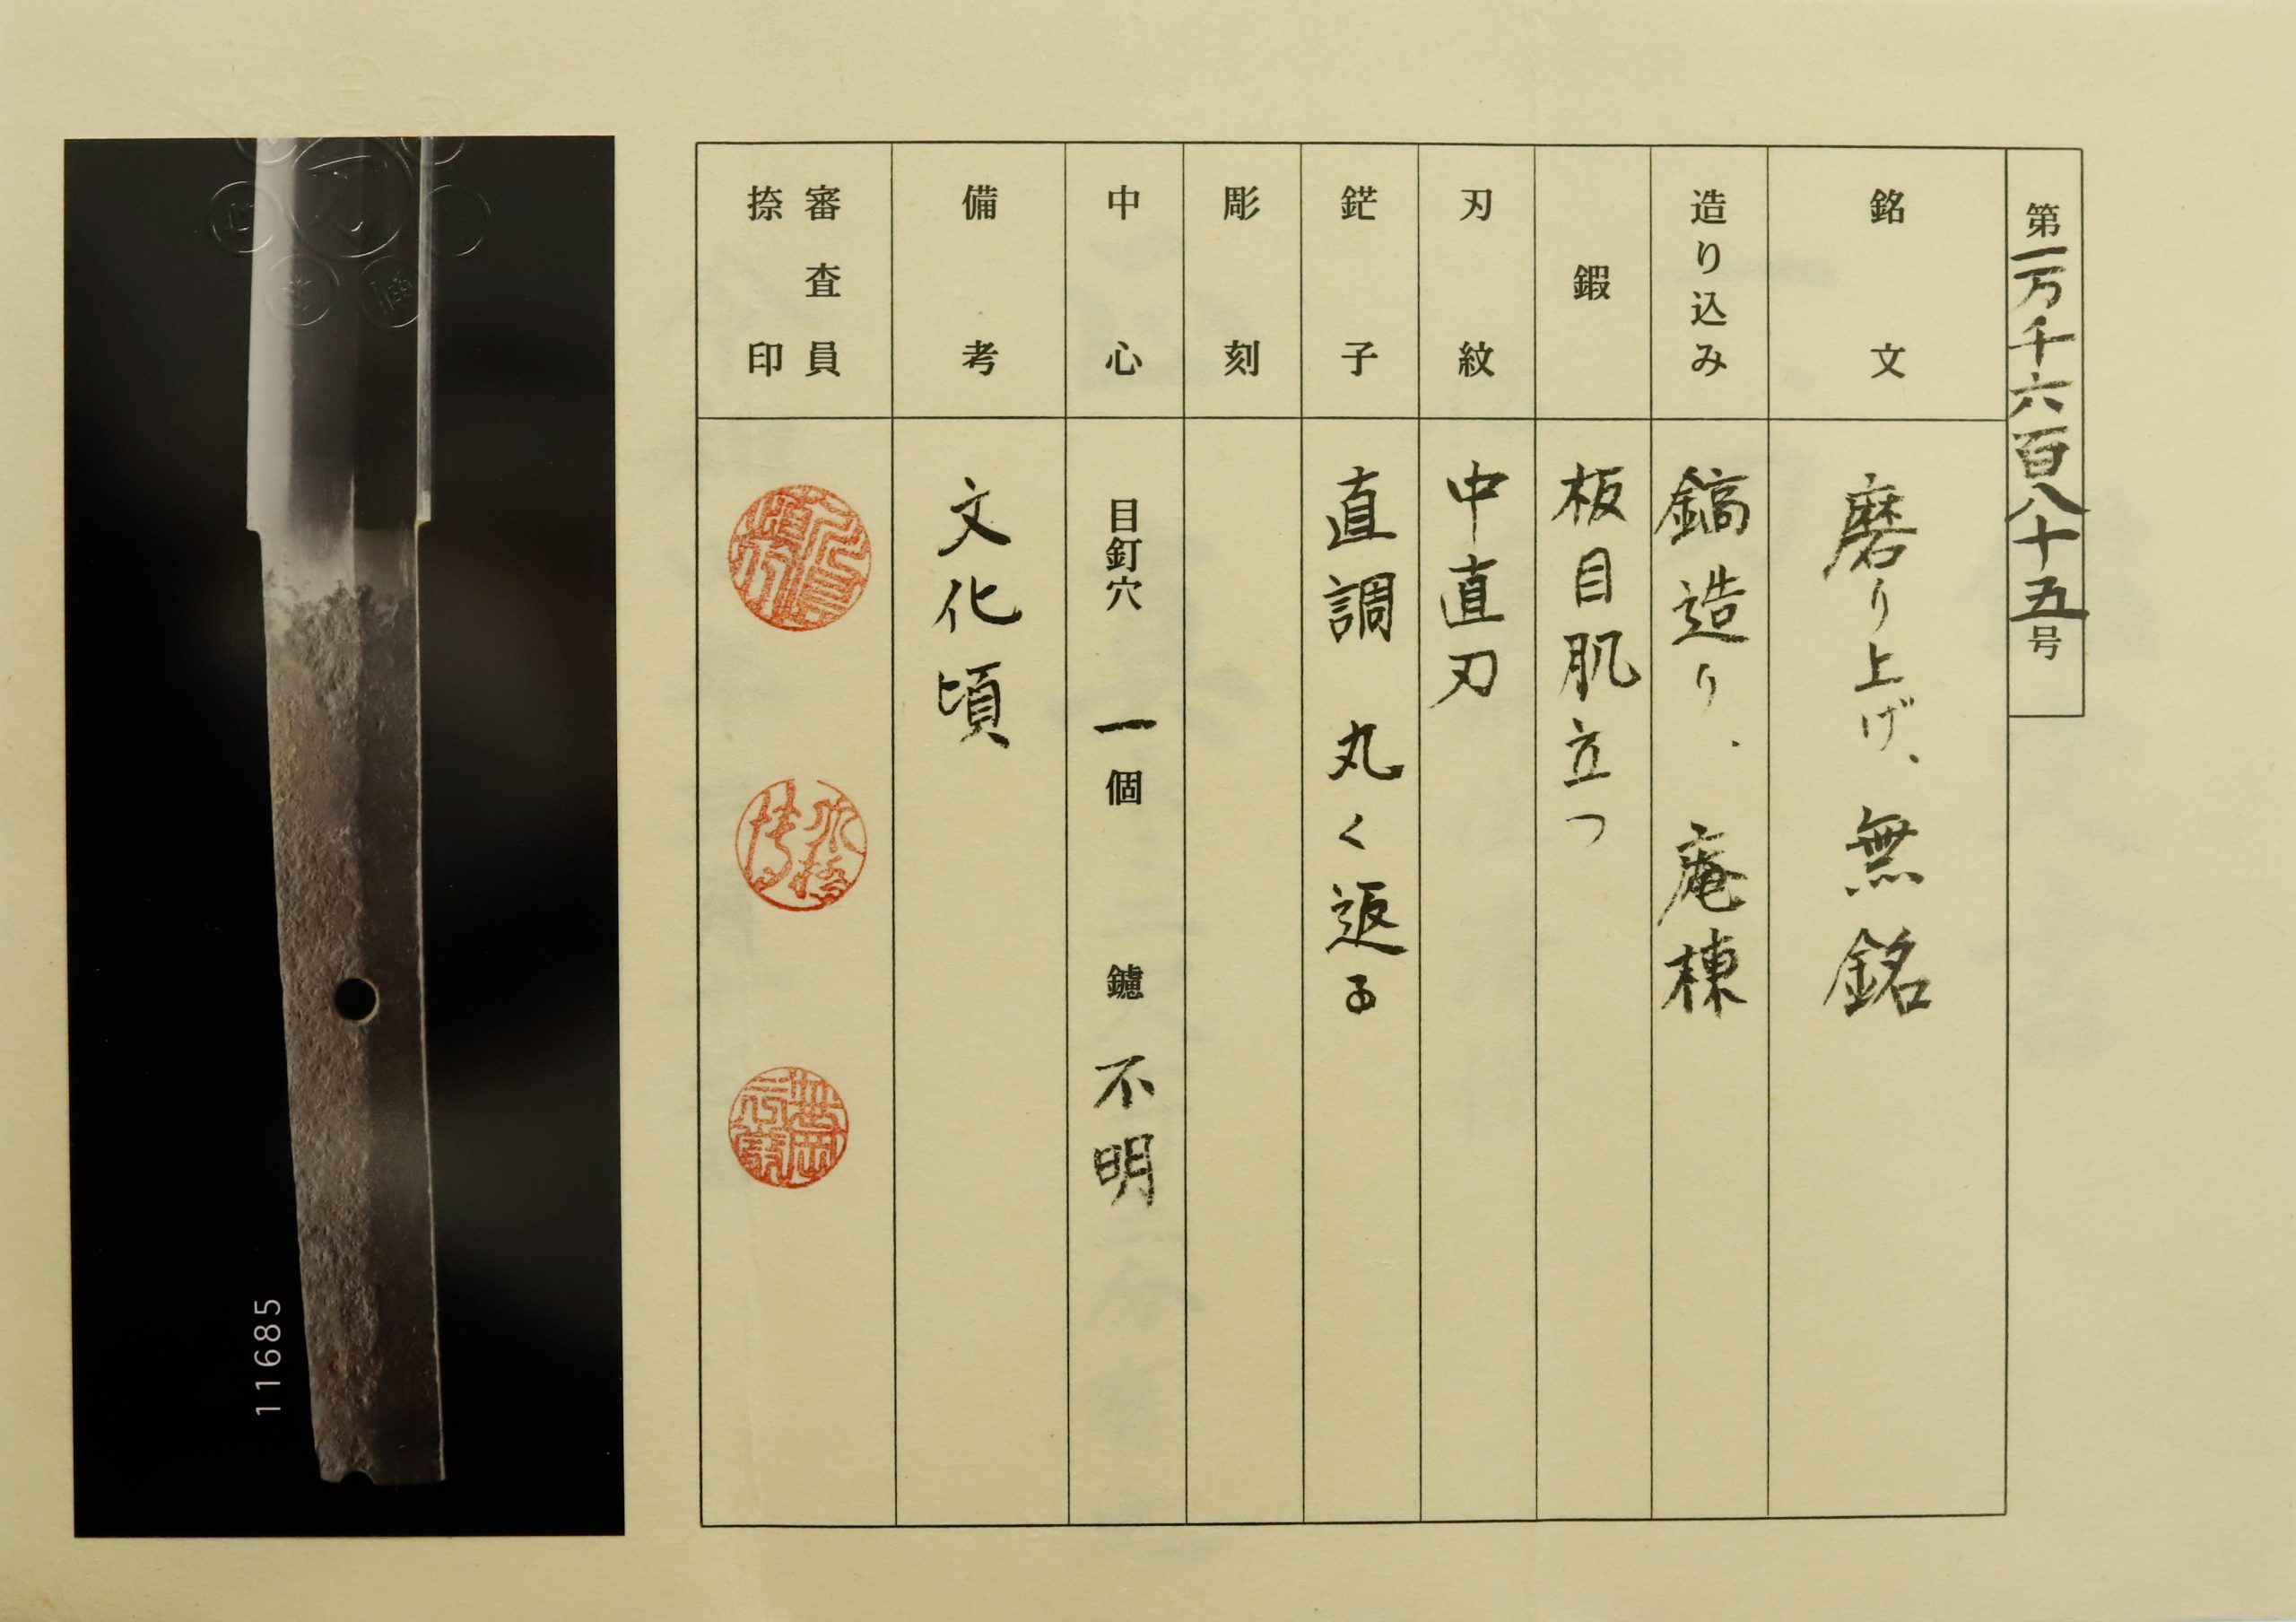 第一万千六百八十五号
銘文
磨り上げ、無銘
造り込み
鎬造り、庵棟
鍜
板目肌立つ
刃紋
中直刃
鋩子
直調 丸く返る
彫刻
中心
目釘穴 一個 鑢 不明
備考
文化頃
審査員
捺印
11685